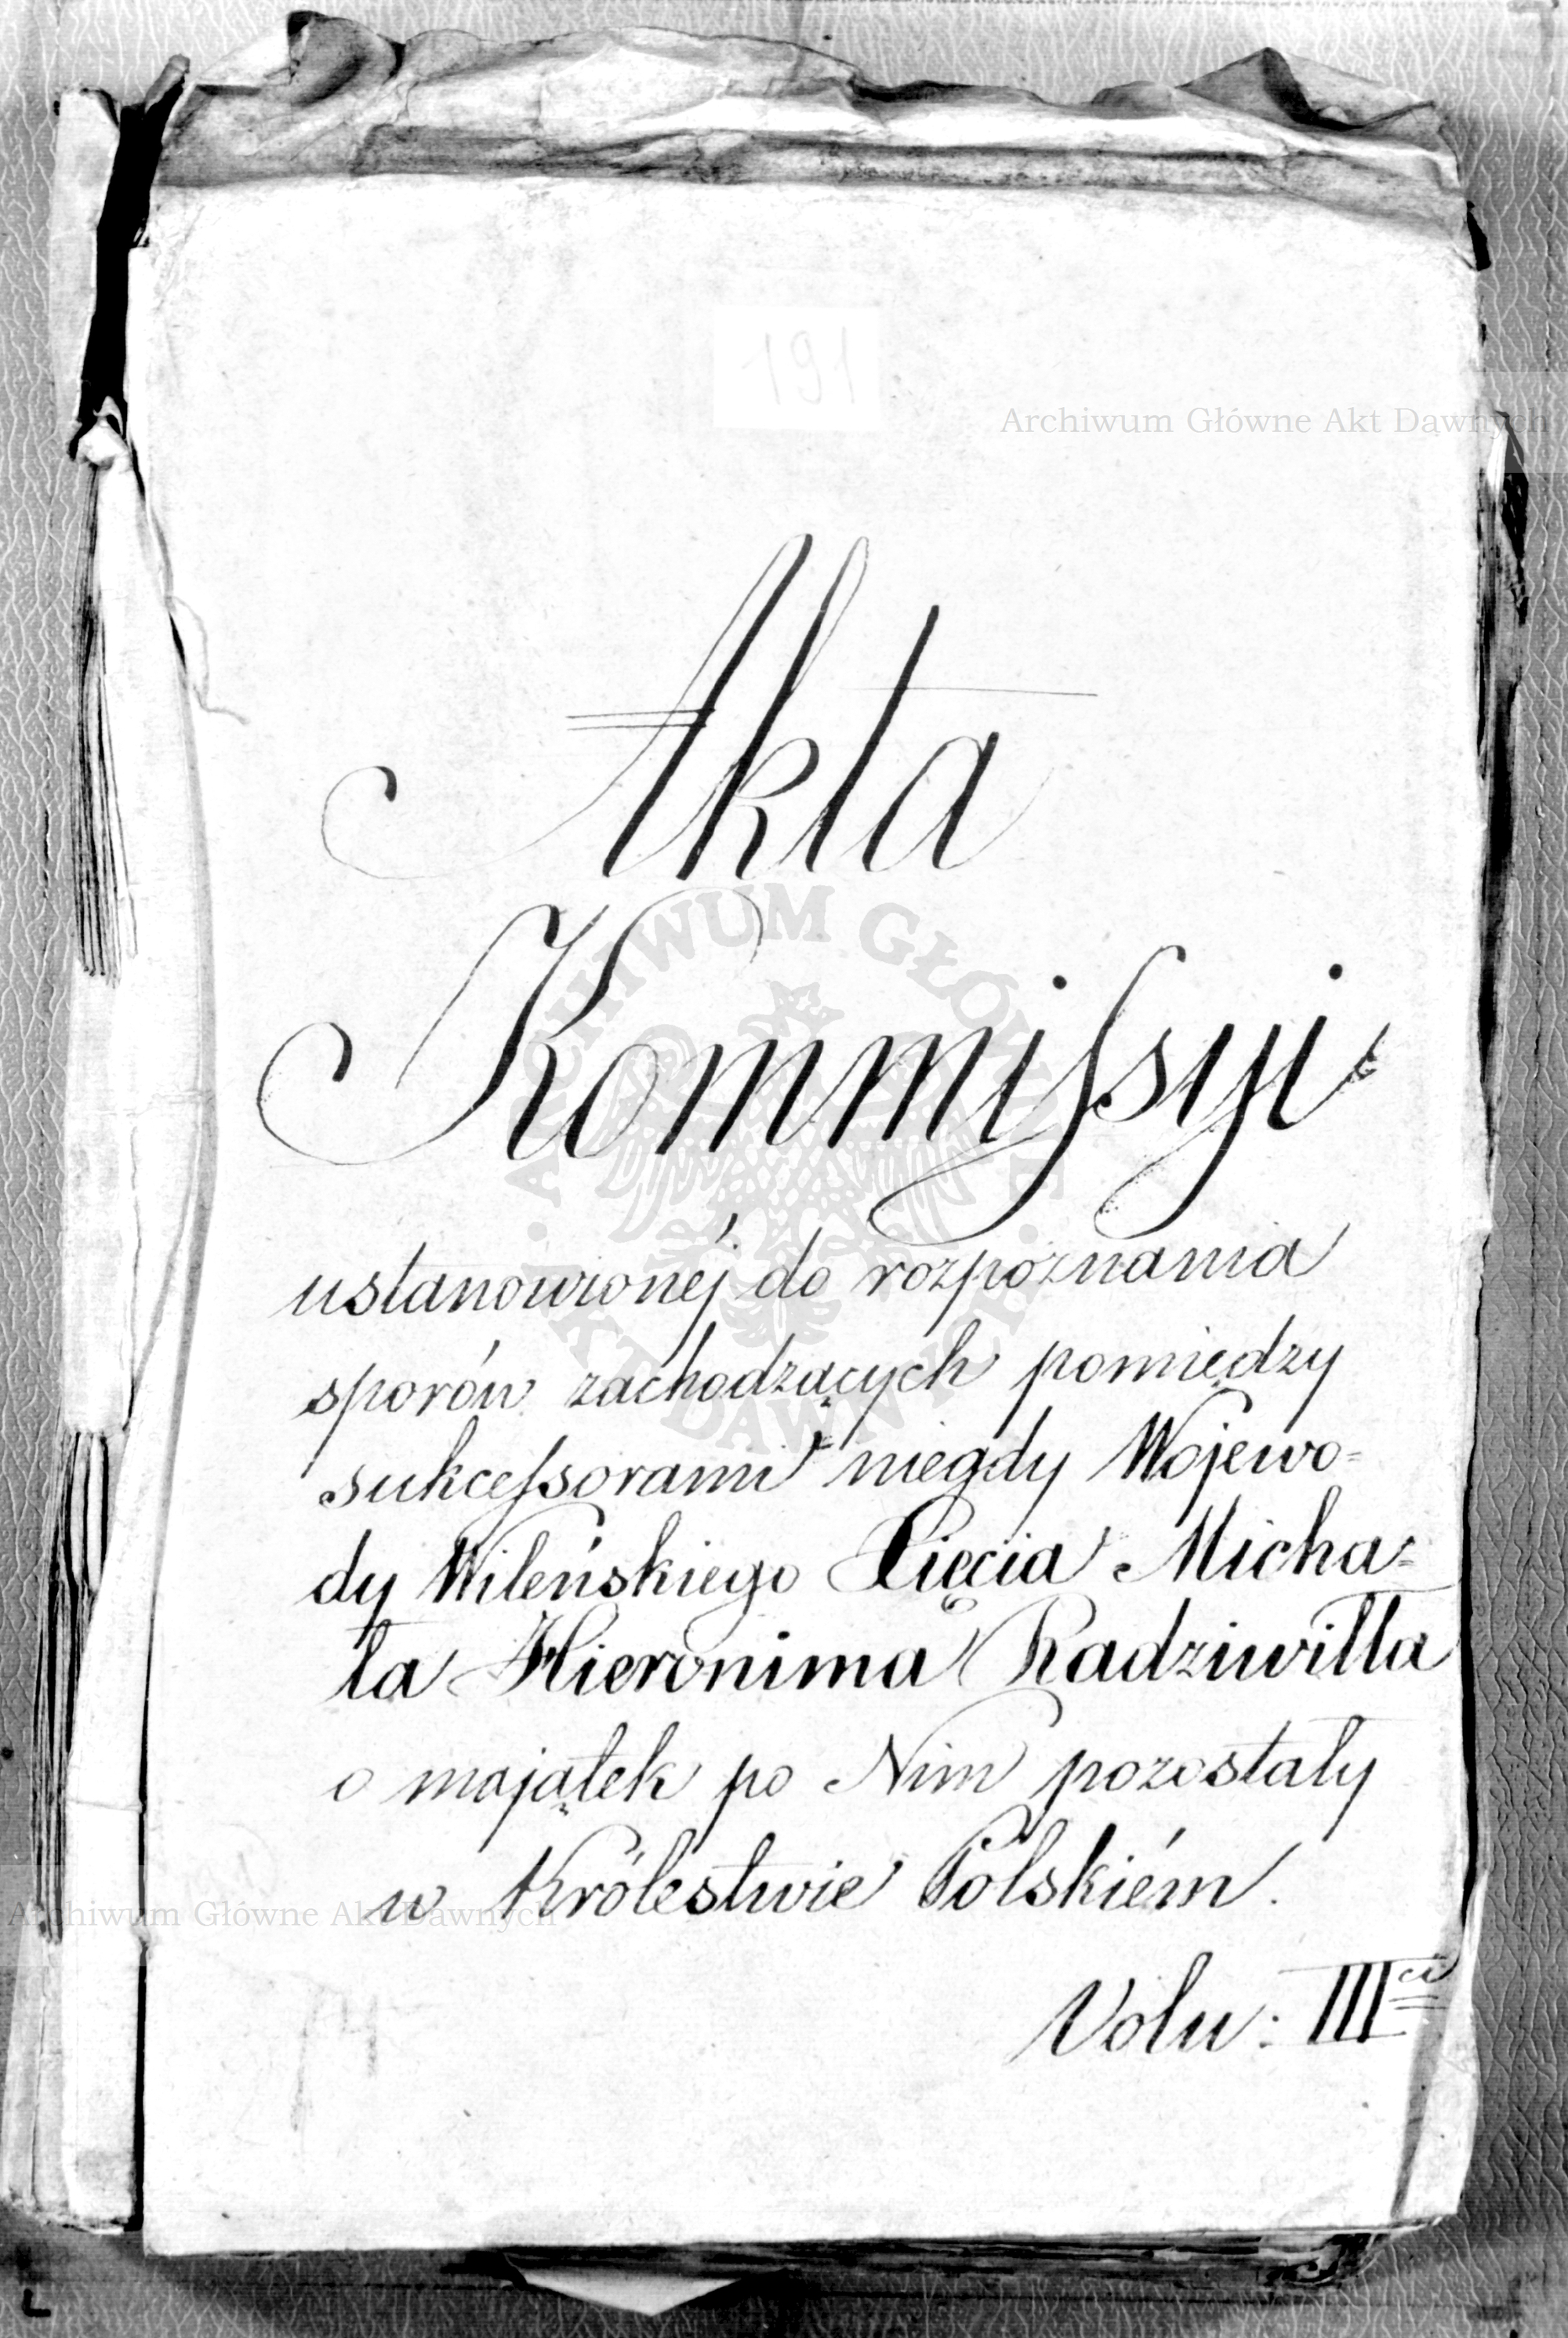 191
Archiwum Główne Akt Dawnych
Akta
Kommissyi
ARCHIWUM GŁÓWNE
AKT DAWNYCH
ustanowionéj do rozpoznania
sporów zachodzących pomiędzy
sukcessorami niegdy Wojewo=
dy Wileńskiego Xięcia Micha=
ła Hieronima Radziwiłła
o majątek po Nim pozostały
w Królestwie Polskiém.
Archiwum Główne Akt Dawnych
Volu: III ci